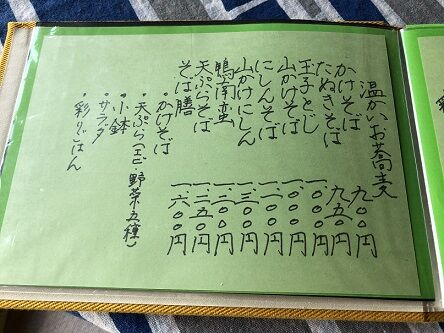 温かいお蕎麦
かけそば 九〇〇円
たぬきそば 九五〇円
玉子とじ 一、〇〇〇円
山かけそば 一、〇〇〇円
にしんそば
山かけにしん
鴨南蛮
天ぷらそば
そば膳 一、六〇〇円
・かけそば
・天ぷら(エビ・野菜五種)
・小鉢
・サラダ
・彩りごはん